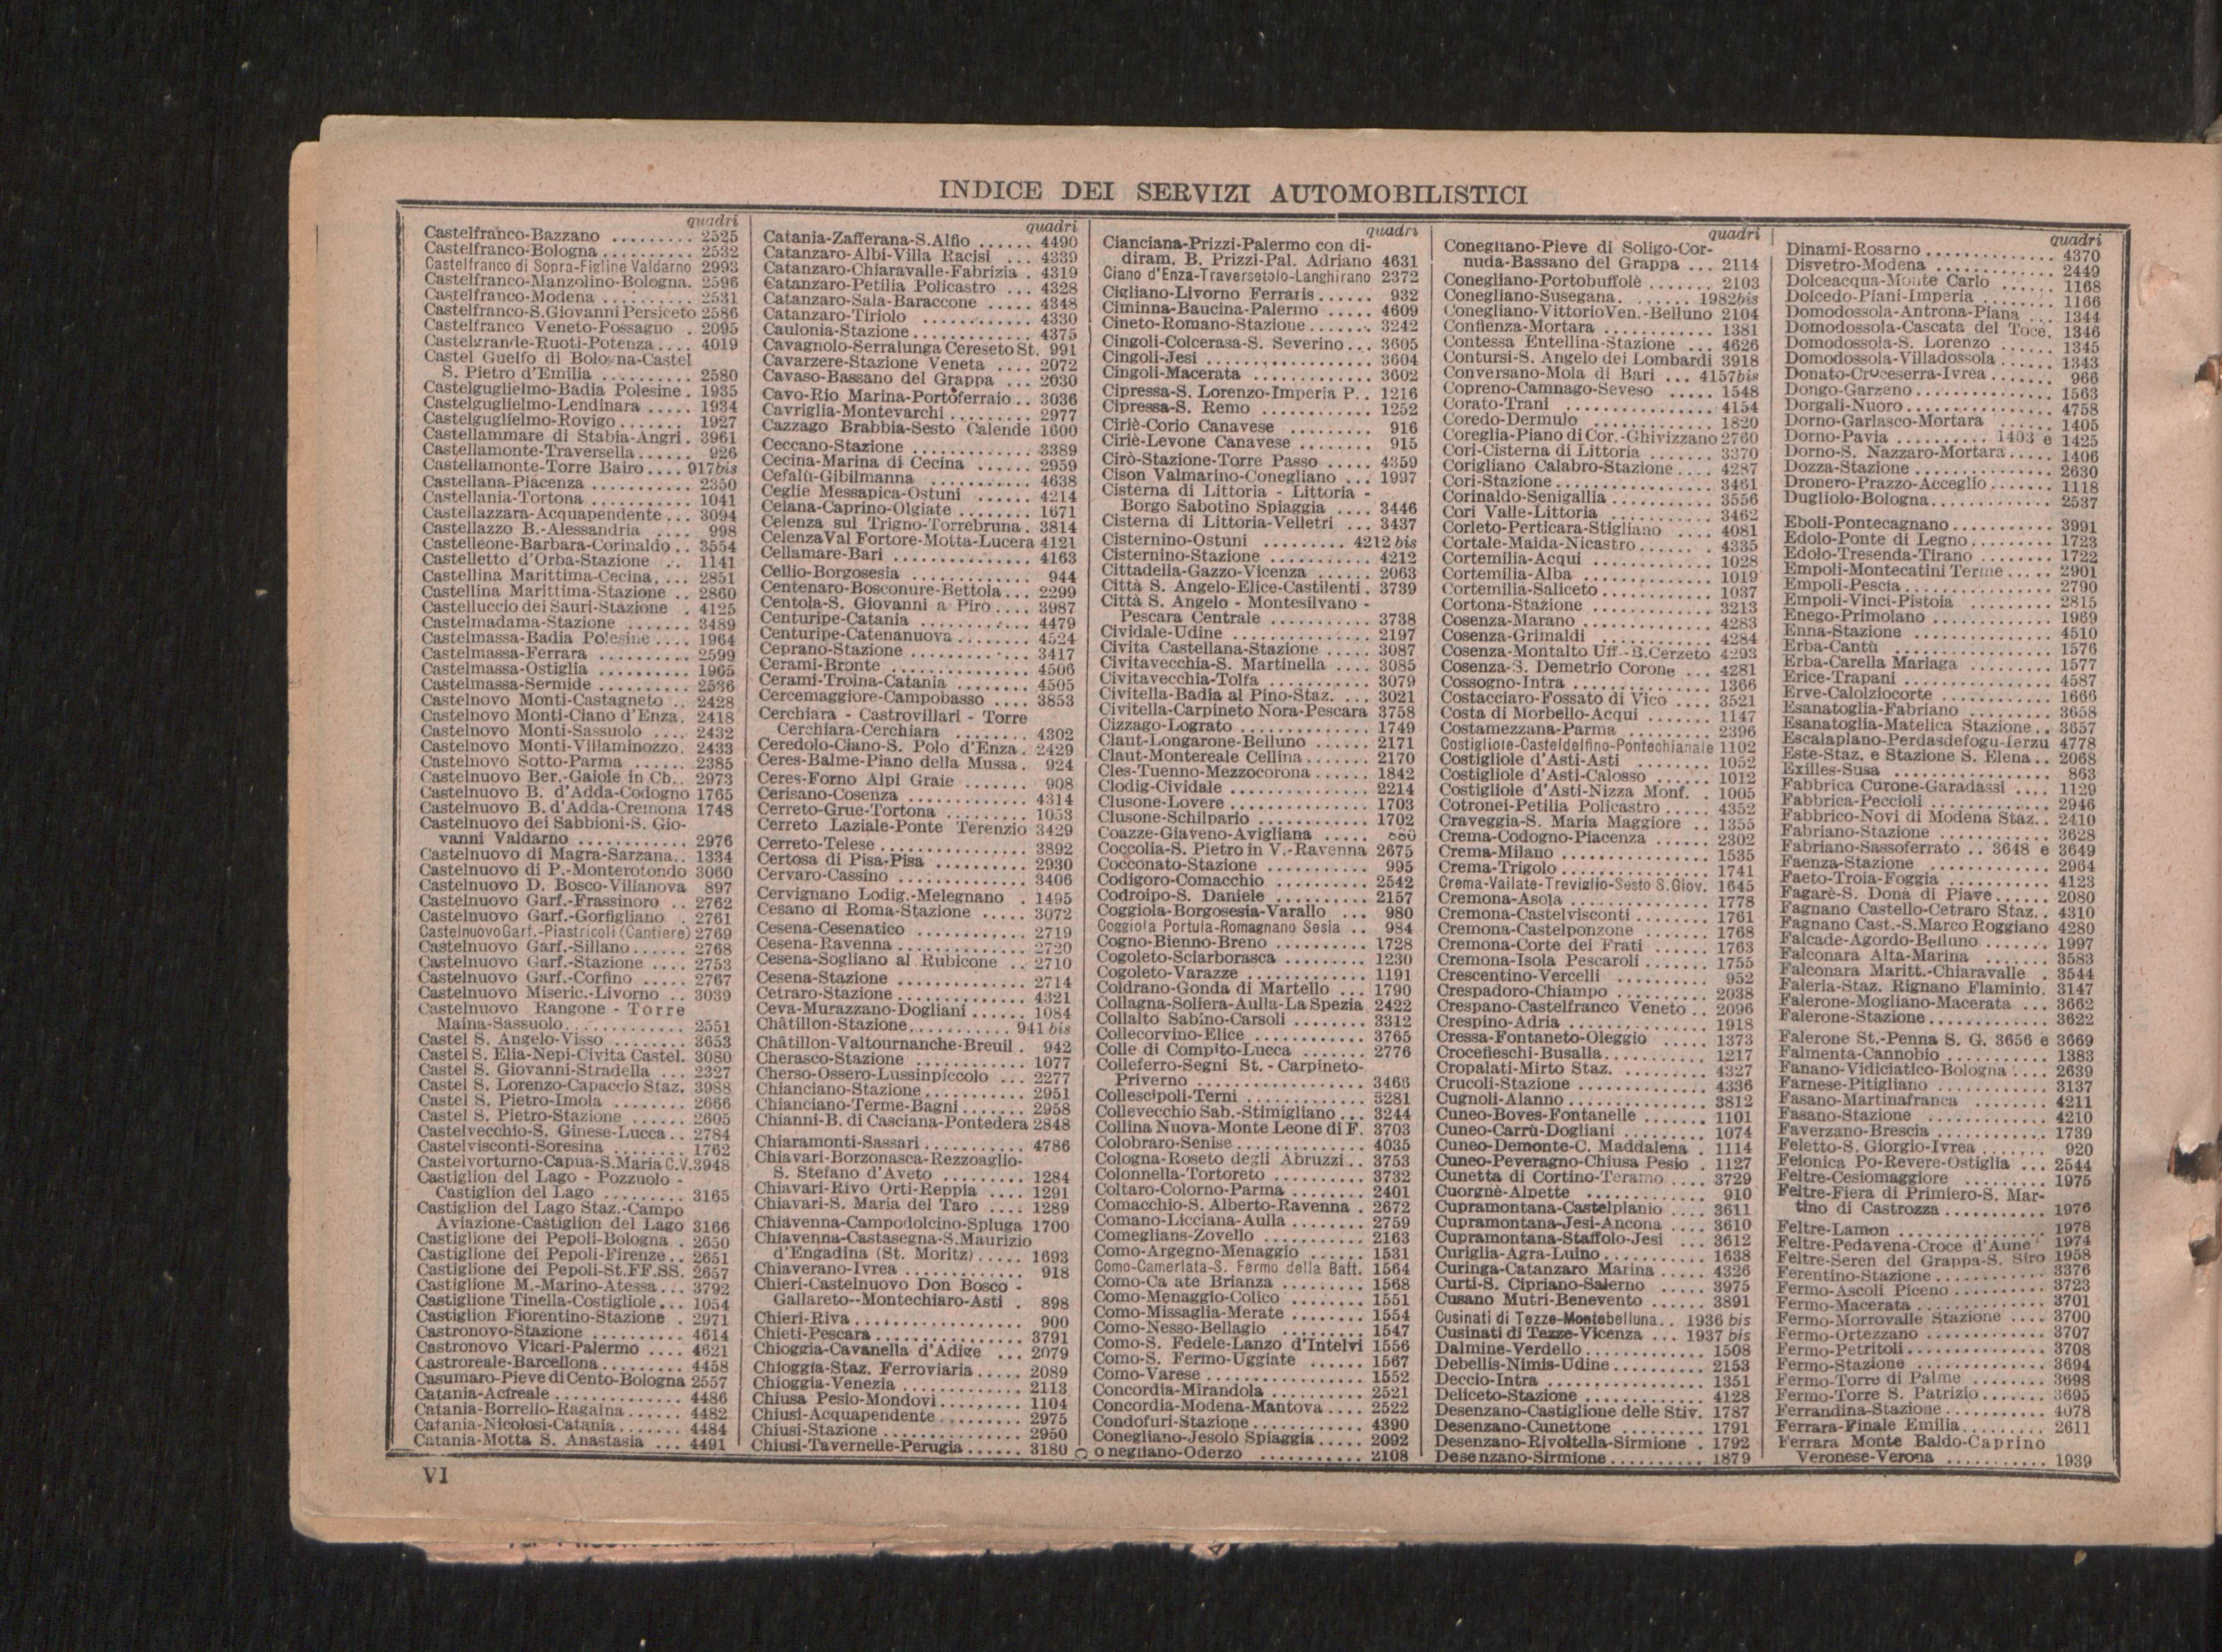 INDICE DEI SERVIZI AUTOMOBILISTICI
quadri
Castelfranco-Bazzano ......... 2525
Castelfranco-Bologna .......... 2532
Castelfranco di Sopra-Figline Valdarno 2993
Castelfranco-Manzolino-Bologna. 2596
Castelfranco-Modena .......... 2531
Castelfranco-S.Giovanni Persiceto 2586
Castelfranco Veneto-Possagno . 2095
Castelgrande-Ruoti-Potenza.... 4019
Castel Guelfo di Bologna-Castel
S. Pietro d'Emilia .......... 2580
Castelguglielmo-Badia Polesine. 1935
Castelguglielmo-Lendinara ..... 1934
Castelguglielmo-Rovigo....... 1927
Castellammare di Stabia-Angri. 3961
Castellamonte-Traversella...... 926
Castellamonte-Torre Bairo.... 917bis
Castellana-Piacenza ........... 2350
Castellania-Tortona ........... 1041
Castellazzara-Acquapendente... 3094
Castellazzo B.-Alessandria .... 998
Castelleone-Barbara-Corinaldo.. 3554
Castelletto d'Orba-Stazione .. 1141
Castellina Marittima-Cecina.... 2851
Castellina Marittima-Stazione .. 2860
Castelluccio dei Sauri-Stazione . 4125
Castelmadama-Stazione ....... 3489
Castelmassa-Badia Polesine.... 1964
Castelmassa-Ferrara .......... 2599
Castelmassa-Ostiglia .......... 1965
Castelmassa-Sermide .......... 2536
Castelnovo Monti-Castagneto .. 2428
Castelnovo Monti-Ciano d'Enza. 2418
Castelnovo Monti-Sassuolo .... 2432
Castelnovo Monti-Villaminozzo. 2433
Castelnovo Sotto-Parma ...... 2385
Castelnuovo Ber.-Gaiole in Ch.. 2973
Castelnuovo B. d'Adda-Codogno 1765
Castelnuovo B. d'Adda-Cremona 1748
Castelnuovo dei Sabbioni-S. Gio-
vanni Valdarno ............ 2976
Castelnuovo di Magra-Sarzana.. 1334
Castelnuovo di P.-Monterotondo 3060
Castelnuovo D. Bosco-Villanova 897
Castelnuovo Garf.-Frassinoro .. 2762
Castelnuovo Garf.-Gorfigliano . 2761
Castelnuovo Garf.-Piastricoli (Cantiere) 2769
Castelnuovo Garf.-Sillano...... 2768
Castelnuovo Garf.-Stazione .... 2753
Castelnuovo Garf.-Corfino ..... 2767
Castelnuovo Miseric.-Livorno .. 3039
Castelnuovo Rangone - Torre
Maina-Sassuolo............. 2551
Castel S. Angelo-Visso ........ 3653
Castel S. Elia-Nepi-Civita Castel. 3080
Castel S. Giovanni-Stradella ... 2327
Castel S. Lorenzo-Capaccio Staz. 3988
Castel S. Pietro-Imola ........ 2666
Castel S. Pietro-Stazione ...... 2605
Castelvecchio-S. Ginese-Lucca.. 2784
Castelvisconti-Soresina ........ 1762
Castelvorturno-Capua-S.Maria C.V.3948
Castiglion del Lago - Pozzuolo -
Castiglion del Lago ......... 3165
Castiglion del Lago Staz.-Campo
Aviazione-Castiglion del Lago 3166
Castiglione dei Pepoli-Bologna . 2650
Castiglione dei Pepoli-Firenze.. 2651
Castiglione dei Pepoli-St.FF.SS. 2657
Castiglione M.-Marino-Atessa... 3792
Castiglione Tinella-Costigliole... 1054
Castiglion Fiorentino-Stazione . 2971
Castronovo-Stazione .......... 4614
Castronovo Vicari-Palermo .... 4621
Castroreale-Barcellona......... 4458
Casumaro-Pieve di Cento-Bologna 2557
Catania-Acireale .............. 4486
Catania-Borrello-Ragalna...... 4482
Catania-Nicolosi-Catania....... 4484
Catania-Motta S. Anastasia ... 4491
quadri
Catania-Zafferana-S.Alfio ...... 4490
Catanzaro-Albi-Villa Racisi ... 4339
Catanzaro-Chiaravalle-Fabrizia . 4319
Catanzaro-Petilia Policastro ... 4328
Catanzaro-Sala-Baraccone ..... 4348
Catanzaro-Tiriolo ............ 4330
Caulonia-Stazione............. 4375
Cavagnolo-Serralunga Cereseto St. 991
Cavarzere-Stazione Veneta .... 2072
Cavaso-Bassano del Grappa ... 2030
Cavo-Rio Marina-Portoferraio.. 3036
Cavriglia-Montevarchi ......... 2977
Cazzago Brabbia-Sesto Calende 1600
Ceccano-Stazione ............. 3389
Cecina-Marina di Cecina ...... 2959
Cefalù-Gibilmanna ........... 4638
Ceglie Messapica-Ostuni ...... 4214
Celana-Caprino-Olgiate ........ 1671
Celenza sul Trigno-Torrebruna. 3814
Celenza Val Fortore-Motta-Lucera 4121
Cellamare-Bari ............... 4163
Cellio-Borgosesia ............. 944
Centenaro-Bosconure-Bettola... 2299
Centola-S. Giovanni a Piro.... 3987
Centuripe-Catania ............ 4479
Centuripe-Catenanuova........ 4524
Ceprano-Stazione ............. 3417
Cerami-Bronte ............... 4506
Cerami-Troina-Catania ........ 4505
Cercemaggiore-Campobasso .... 3853
Cerchiara - Castrovillari - Torre
Cerchiara-Cerchiara ........ 4302
Ceredolo-Ciano-S. Polo d'Enza. 2429
Ceres-Balme-Piano della Mussa. 924
Ceres-Forno Alpi Graie ....... 908
Cerisano-Cosenza ............. 4314
Cerreto-Grue-Tortona ......... 1053
Cerreto Laziale-Ponte Terenzio 3429
Cerreto-Telese ................ 3892
Certosa di Pisa-Pisa .......... 2930
Cervaro-Cassino .............. 3406
Cervignano Lodig.-Melegnano . 1495
Cesano di Roma-Stazione ..... 3072
Cesena-Cesenatico ............ 2719
Cesena-Ravenna .............. 2720
Cesena-Sogliano al Rubicone .. 2710
Cesena-Stazione .............. 2714
Cetraro-Stazione.............. 4321
Ceva-Murazzano-Dogliani ...... 1084
Châtillon-Stazione........... 941 bis
Châtillon-Valtournanche-Breuil . 942
Cherasco-Stazione ............ 1077
Cherso-Ossero-Lussinpiccolo ... 2277
Chianciano-Stazione........... 2951
Chianciano-Terme-Bagni....... 2958
Chianni-B. di Casciana-Pontedera 2848
Chiaramonti-Sassari........... 4786
Chiavari-Borzonasca-Rezzoaglio-
S. Stefano d'Aveto ......... 1284
Chiavari-Rivo Orti-Reppia .... 1291
Chiavari-S. Maria del Taro .... 1289
Chiavenna-Campodolcino-Spluga 1700
Chiavenna-Castasegna-S.Maurizio
d'Engadina (St. Moritz)..... 1693
Chiaverano-Ivrea ............. 918
Chieri-Castelnuovo Don Bosco -
Gallareto--Montechiaro-Asti . 898
Chieri-Riva .................. 900
Chieti-Pescara................ 3791
Chioggia-Cavanella d'Adige ... 2079
Chioggia-Staz. Ferroviaria..... 2089
Chioggia-Venezia ............. 2113
Chiusa Pesio-Mondovì......... 1104
Chiusi-Acquapendente......... 2975
Chiusi-Stazione ............... 2950
Chiusi-Tavernelle-Perugia...... 3180
quadri
Cianciana-Prizzi-Palermo con di-
diram. B. Prizzi-Pal. Adriano 4631
Ciano d'Enza-Traversetolo-Langhirano 2372
Cigliano-Livorno Ferraris...... 932
Ciminna-Baucina-Palermo ..... 4609
Cineto-Romano-Stazione....... 3242
Cingoli-Colcerasa-S. Severino... 3605
Cingoli-Jesi .................. 3604
Cingoli-Macerata ............. 3602
Cipressa-S. Lorenzo-Imperia P.. 1216
Cipressa-S. Remo ............ 1252
Ciriè-Corio Canavese ......... 916
Ciriè-Levone Canavese ........ 915
Cirò-Stazione-Torre Passo ..... 4359
Cison Valmarino-Conegliano ... 1997
Cisterna di Littoria - Littoria -
Borgo Sabotino Spiaggia .... 3446
Cisterna di Littoria-Velletri ... 3437
Cisternino-Ostuni ......... 4212 bis
Cisternino-Stazione ........... 4212
Cittadella-Gazzo-Vicenza ...... 2063
Città S. Angelo-Elice-Castilenti. 3739
Città S. Angelo - Montesilvano -
Pescara Centrale ........... 3738
Cividale-Udine ............... 2197
Civita Castellana-Stazione ..... 3087
Civitavecchia-S. Martinella .... 3085
Civitavecchia-Tolfa ........... 3079
Civitella-Badia al Pino-Staz. ... 3021
Civitella-Carpineto Nora-Pescara 3758
Cizzago-Lograto .............. 1749
Claut-Longarone-Belluno ...... 2171
Claut-Montereale Cellina....... 2170
Cles-Tuenno-Mezzocorona...... 1842
Clodig-Cividale ............... 2214
Clusone-Lovere ............... 1703
Clusone-Schilpario ............ 1702
Coazze-Giaveno-Avigliana .....
Coccolia-S. Pietro in V.-Ravenna 2675
Cocconato-Stazione ........... 995
Codigoro-Comacchio .......... 2542
Codroipo-S. Daniele .......... 2157
Coggiola-Borgosesia-Varallo ... 980
Coggiola Portula-Romagnano Sesia .. 984
Cogno-Bienno-Breno .......... 1728
Cogoleto-Sciarborasca ......... 1230
Cogoleto-Varazze ............. 1191
Coldrano-Gonda di Martello ... 1790
Collagna-Soliera-Aulla-La Spezia 2422
Collalto Sabino-Carsoli ........ 3312
Collecorvino-Elice ............. 3765
Colle di Compito-Lucca ....... 2776
Colleferro-Segni St. - Carpineto-
Priverno .................. 3466
Collescipoli-Terni ............. 3281
Collevecchio Sab.-Stimigliano ... 3244
Collina Nuova-Monte Leone di F. 3703
Colobraro-Senise .............. 4035
Cologna-Roseto degli Abruzzi.. 3753
Colonnella-Tortoreto .......... 3732
Coltaro-Colorno-Parma ........ 2401
Comacchio-S. Alberto-Ravenna . 2672
Comano-Licciana-Aulla ........ 2759
Comeglians-Zovello ........... 2163
Como-Argegno-Menaggio ...... 1531
Como-Camerlata-S. Fermo della Batt. 1564
Como-Ca ate Brianza ......... 1568
Como-Menaggio-Colico ........ 1551
Como-Missaglia-Merate ....... 1554
Como-Nesso-Bellagio ......... 1547
Como-S. Fedele-Lanzo d'Intelvi 1556
Como-S. Fermo-Uggiate ...... 1567
Como-Varese ................. 1552
Concordia-Mirandola .......... 2521
Concordia-Modena-Mantova.... 2522
Condofuri-Stazione ............ 4390
Conegliano-Jesolo Spiaggia..... 2092
o negliano-Oderzo ........... 2108
quadri
Conegliano-Pieve di Soligo-Cor-
nuda-Bassano del Grappa ... 2114
Conegliano-Portobuffolè ....... 2103
Conegliano-Susegana. ....... 1982bis
Conegliano-Vittorio Ven.-Belluno 2104
Confienza-Mortara ............ 1381
Contessa Entellina-Stazione ... 4626
Contursi-S. Angelo dei Lombardi 3918
Conversano-Mola di Bari ... 4157bis
Copreno-Camnago-Seveso ..... 1548
Corato-Trani ................ 4154
Coredo-Dermulo .............. 1820
Coreglia-Piano di Cor.-Ghivizzano 2760
Cori-Cisterna di Littoria ....... 3370
Corigliano Calabro-Stazione.... 4287
Cori-Stazione................. 3461
Corinaldo-Senigallia ........... 3556
Cori Valle-Littoria ........... 3462
Corleto-Perticara-Stigliano .... 4081
Cortale-Maida-Nicastro....... 4335
Cortemilia-Acqui ............. 1028
Cortemilia-Alba .............. 1019
Cortemilia-Saliceto ............ 1037
Cortona-Stazione ............. 3213
Cosenza-Marano .............. 4283
Cosenza-Grimaldi ............ 4284
Cosenza-Montalto Uff.-B.Cerzeto 4293
Cosenza-S. Demetrio Corone ... 4281
Cossogno-Intra ............... 1366
Costacciaro-Fossato di Vico .... 3521
Costa di Morbello-Acqui ....... 1147
Costamezzana-Parma .......... 2396
Costigliole-Casteldelfino-Pontechianale 1102
Costigliole d'Asti-Asti ........ 1052
Costigliole d'Asti-Calosso ...... 1012
Costigliole d'Asti-Nizza Monf. . 1005
Cotronei-Petilia Policastro ..... 4352
Craveggia-S. Maria Maggiore .. 1355
Crema-Codogno-Piacenza ...... 2302
Crema-Milano ................ 1535
Crema-Trigolo ................ 1741
Crema-Vailate-Treviglio-Sesto S.Giov. 1645
Cremona-Asola ............... 1778
Cremona-Castelvisconti ........ 1761
Cremona-Castelponzone ....... 1768
Cremona-Corte dei Frati ...... 1763
Cremona-Isola Pescaroli ....... 1755
Crescentino-Vercelli ........... 952
Crespadoro-Chiampo .......... 2038
Crespano-Castelfranco Veneto .. 2096
Crespino-Adria ............... 1918
Cressa-Fontaneto-Oleggio ..... 1373
Crocefieschi-Busalla........... 1217
Cropalati-Mirto Staz. ......... 4327
Crucoli-Stazione .............. 4336
Cugnoli-Alanno ............... 3812
Cuneo-Boves-Fontanelle ....... 1101
Cuneo-Carrù-Dogliani ......... 1074
Cuneo-Demonte-C. Maddalena . 1114
Cuneo-Peveragno-Chiusa Pesio . 1127
Cunetta di Cortino-Teramo .... 3729
Cuorgnè-Alpette ............. 910
Cupramontana-Castelplanio .... 3611
Cupramontana-Jesi-Ancona .... 3610
Cupramontana-Staffolo-Jesi ... 3612
Curiglia-Agra-Luino........... 1638
Curinga-Catanzaro Marina ..... 4326
Curti-S. Cipriano-Salerno ..... 3975
Cusano Mutri-Benevento ...... 3891
Cusinati di Tezze-Montebelluna.. 1936 bis
Cusinati di Tezze-Vicenza ... 1937 bis
Dalmine-Verdello ............. 1508
Debellis-Nimis-Udine........... 2153
Deccio-Intra ................. 1351
Deliceto-Stazione ............. 4128
Desenzano-Castiglione delle Stiv. 1787
Desenzano-Cunettone ......... 1791
Desenzano-Rivoltella-Sirmione . 1792
Desenzano-Sirmione.......... 1879
quadri
Dinami-Rosarno............... 4370
Disvetro-Modena ............. 2449
Dolceacqua-Monte Carlo ...... 1168
Dolcedo-Piani-Imperia ........ 1166
Domodossola-Antrona-Piana ... 1344
Domodossola-Cascata del Toce. 1346
Domodossola-S. Lorenzo ...... 1345
Domodossola-Villadossola ...... 1343
Donato-Croceserra-Ivrea....... 966
Dongo-Garzeno............... 1563
Dorgali-Nuoro................ 4758
Dorno-Garlasco-Mortara ...... 1405
Dorno-Pavia .......... 1403 e 1425
Dorno-S. Nazzaro-Mortara..... 1406
Dozza-Stazione ............... 2630
Dronero-Prazzo-Acceglio....... 1118
Dugliolo-Bologna.............. 2537
Eboli-Pontecagnano........... 3991
Edolo-Ponte di Legno......... 1723
Edolo-Tresenda-Tirano ........ 1722
Empoli-Montecatini Terme..... 2901
Empoli-Pescia................ 2790
Empoli-Vinci-Pistoia .......... 2815
Enego-Primolano ............. 1969
Enna-Stazione ............... 4510
Erba-Cantù .................. 1576
Erba-Carella Mariaga ......... 1577
Erice-Trapani ................ 4587
Erve-Calolziocorte ............ 1666
Esanatoglia-Fabriano ......... 3658
Esanatoglia-Matelica Stazione.. 3657
Escalaplano-Perdasdefogu-Ierzu 4778
Este-Staz. e Stazione S. Elena.. 2068
Exilles-Susa ................. 863
Fabbrica Curone-Garadassi .... 1129
Fabbrica-Peccioli ............. 2946
Fabbrico-Novi di Modena Staz.. 2410
Fabriano-Stazione ............ 3628
Fabriano-Sassoferrato .. 3648 e 3649
Faenza-Stazione .............. 2964
Faeto-Troia-Foggia ........... 4123
Fagarè-S. Donà di Piave...... 2080
Fagnano Castello-Cetraro Staz.. 4310
Fagnano Cast.-S.Marco Roggiano 4280
Falcade-Agordo-Belluno ....... 1997
Falconara Alta-Marina ....... 3583
Falconara Maritt.-Chiaravalle . 3544
Faleria-Staz. Rignano Flaminio. 3147
Falerone-Mogliano-Macerata ... 3662
Falerone-Stazione............. 3622
Falerone St.-Penna S. G. 3656 e 3669
Falmenta-Cannobio ........... 1383
Fanano-Vidiciatico-Bologna .... 2639
Farnese-Pitigliano ............ 3137
Fasano-Martinafranca ........ 4211
Fasano-Stazione .............. 4210
Faverzano-Brescia ............ 1739
Feletto-S. Giorgio-Ivrea....... 920
Felonica Po-Revere-Ostiglia ... 2544
Feltre-Cesiomaggiore ......... 1975
Feltre-Fiera di Primiero-S. Mar-
tino di Castrozza ........... 1976
Feltre-Lamon ................ 1978
Feltre-Pedavena-Croce d'Aune 1974
Feltre-Seren del Grappa-S. Siro 1958
Ferentino-Stazione............ 3376
Fermo-Ascoli Piceno .......... 3723
Fermo-Macerata .............. 3701
Fermo-Morrovalle Stazione .... 3700
Fermo-Ortezzano ............. 3707
Fermo-Petritoli............... 3708
Fermo-Stazione .............. 3694
Fermo-Torre di Palme ........ 3698
Fermo-Torre S. Patrizio....... 3695
Ferrandina-Stazione........... 4078
Ferrara-Finale Emilia......... 2611
Ferrara Monte Baldo-Caprino
Veronese-Verona ........... 1939
VI